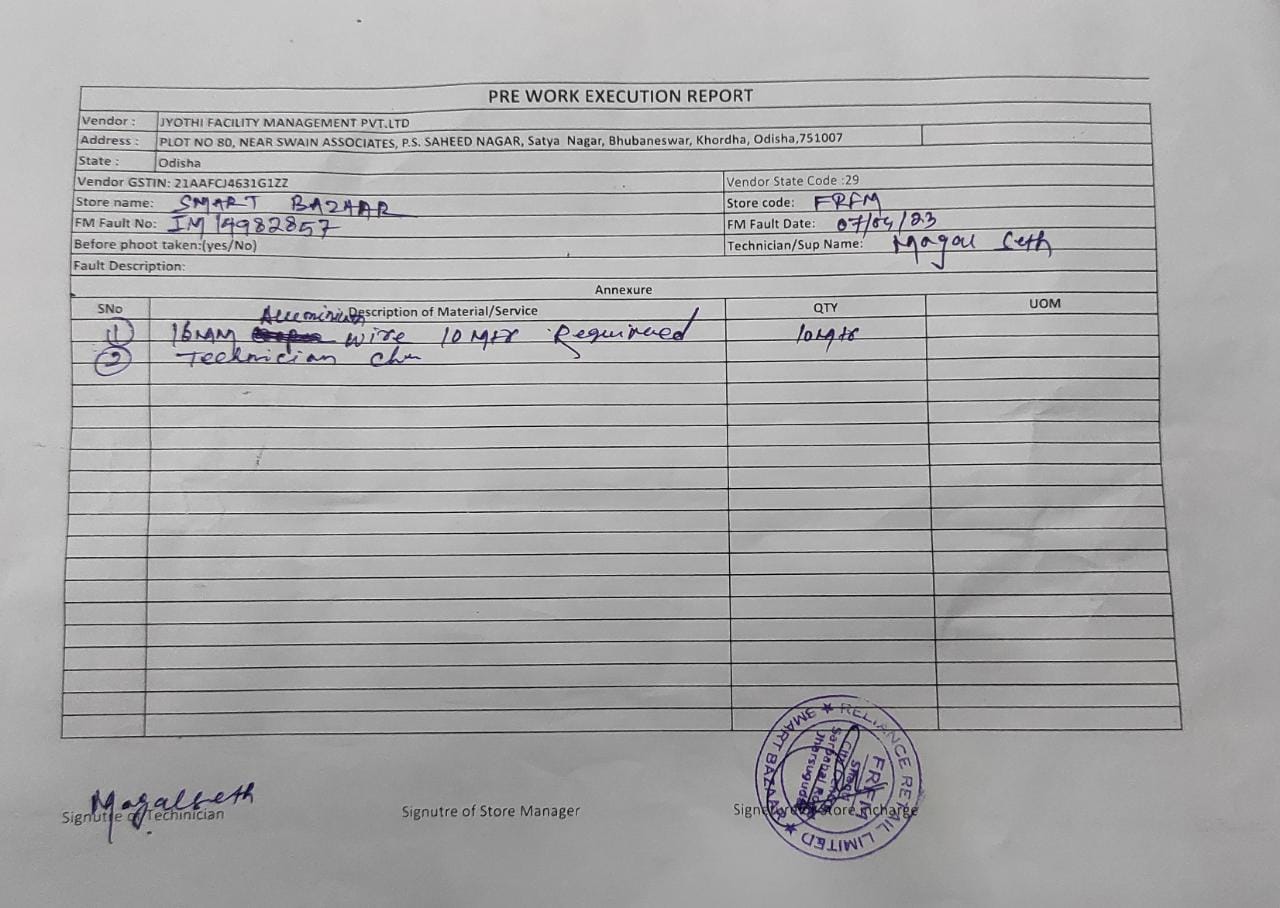 PRE WORK EXECUTION REPORT
Vendor : JYOTHI FACILITY MANAGEMENT PVT.LTD
Address : PLOT NO 80, NEAR SWAIN ASSOCIATES, P.S. SAHEED NAGAR, Satya Nagar, Bhubaneswar, Khordha, Odisha,751007
State : Odisha
Vendor GSTIN: 21AAFCJ4631G1ZZ Vendor State Code :29
Store name: SMART BAZAAR Store code: FRFM
FM Fault No: IM14982857 FM Fault Date: 07/04/23
Before phoot taken:(yes/No) Technician/Sup Name: Magal Seth
Fault Description:
Annexure
SNo Description of Material/Service QTY UOM
Aluminium
① 16MM wire 10 Mtr Required 10Mtr
② Technician
Magalseth
Signutre of Techinician Signutre of Store Manager Signuture of Store Incharge
RELIANCE RETAIL LIMITED ★ SMART BAZAAR ★
FRFM
Sarbahal Road
Jharsuguda